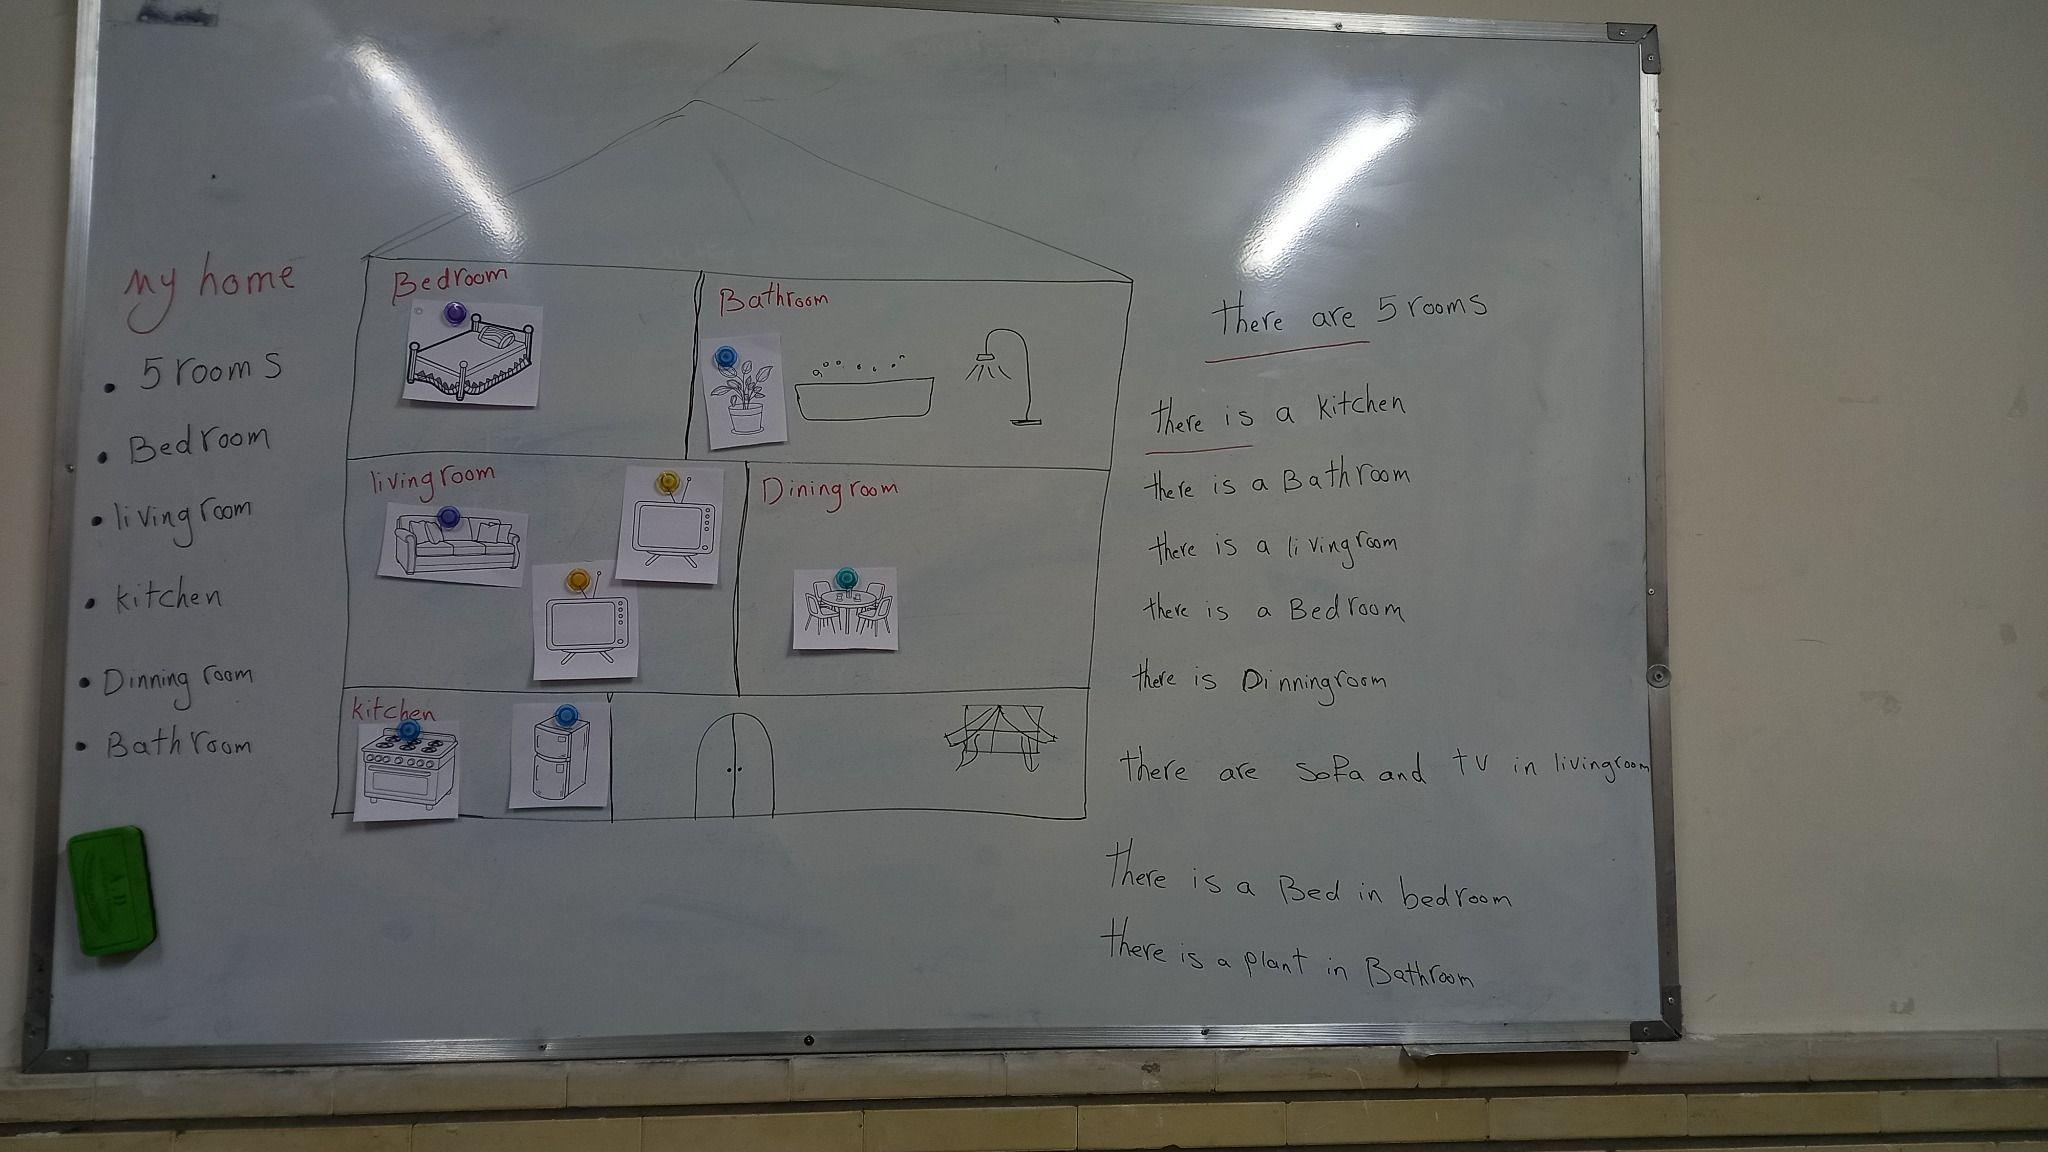 My home
• 5 rooms
• Bedroom
• livingroom
• kitchen
• Dinning room
• Bathroom
Bedroom
Bathroom
livingroom
Diningroom
kitchen
there are 5 rooms
there is a kitchen
there is a Bathroom
there is a livingroom
there is a Bedroom
there is Dinningroom
there are sofa and tv in livingroom
there is a Bed in bedroom
there is a plant in Bathroom